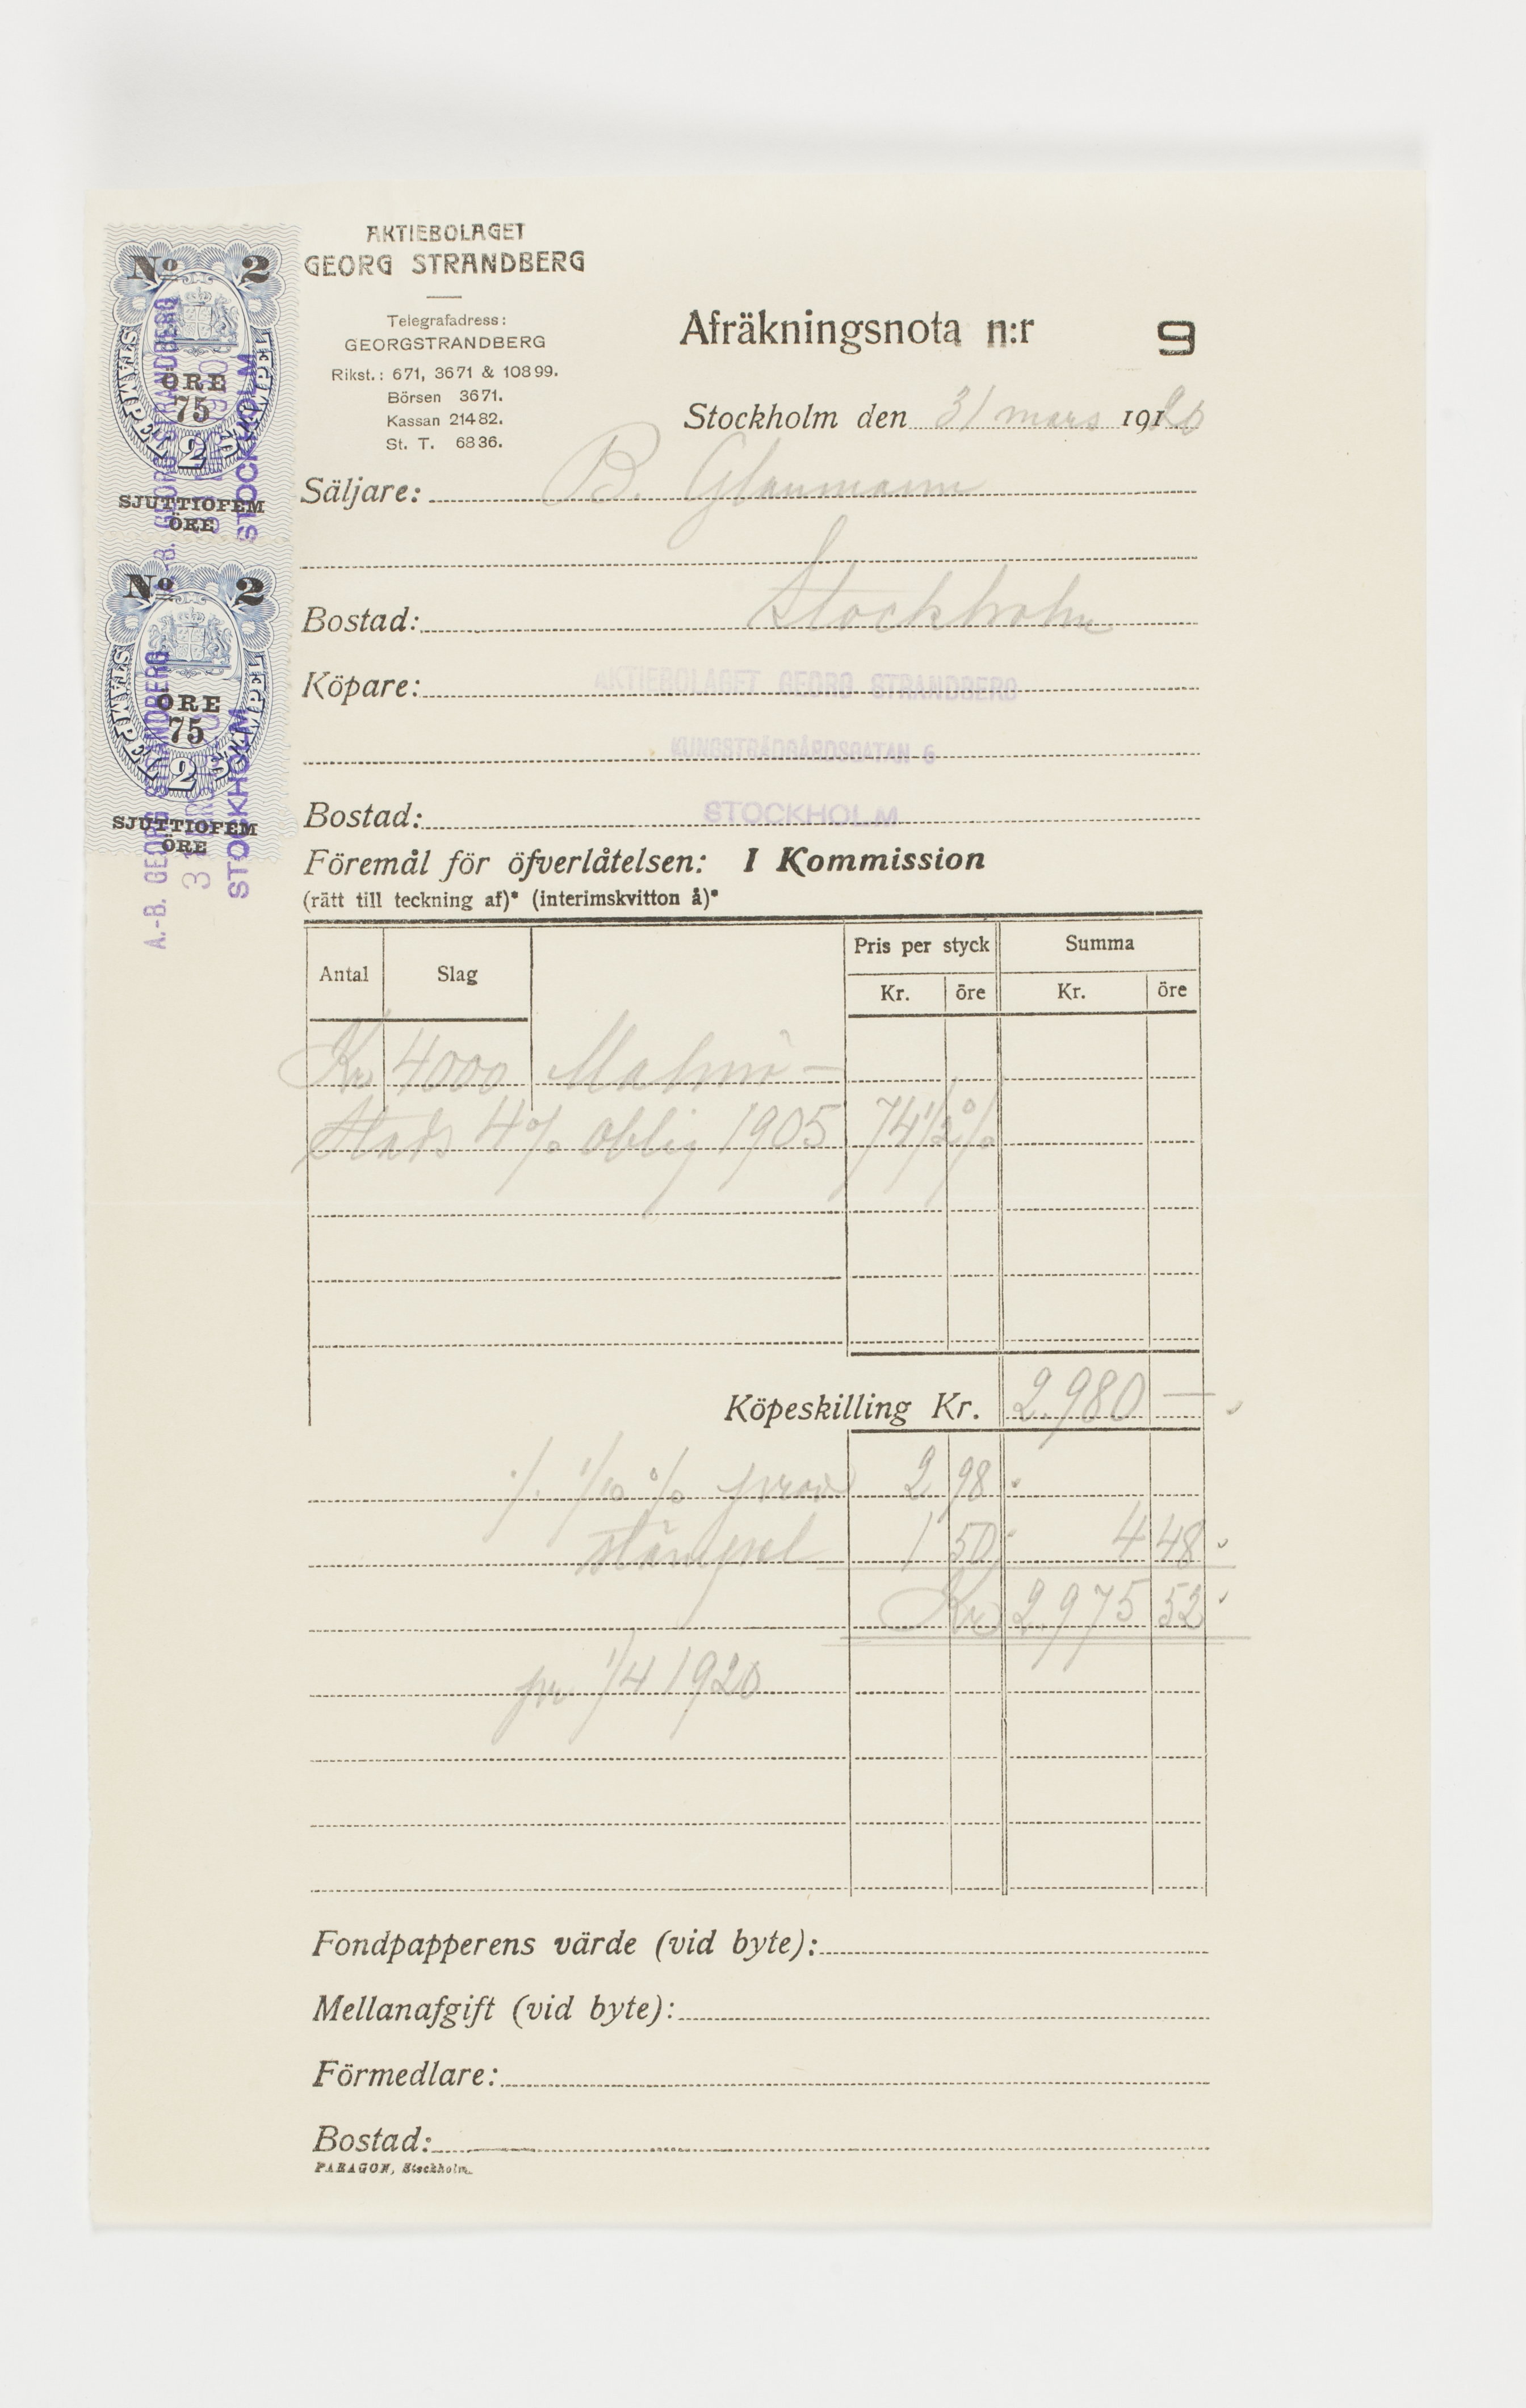 AKTIEBOLAGET
GEORG STRANDBERG
Telegrafadress:
GEORGSTRANDBERG
Rikst.: 671, 3671 & 10899.
Börsen 3671.
Kassan 21482.
St. T. 6836.
Afräkningsnota n:r 9
Stockholm den 31 mars 191 20
Säljare: B. Glaumann
Bostad: Stockholm
Köpare: AKTIEBOLAGET GEORG STRANDBERG
KUNGSTRÄDGÅRDSGATAN 6
Bostad: STOCKHOLM
Föremål för öfverlåtelsen: I Kommission
(rätt till teckning af)* (interimskvitton å)*
Antal Slag Pris per styck Summa
Kr. öre Kr. öre
Kr 4000 Malmö –
Stads 4% Oblig 1905 74 1/2 %
Köpeskilling Kr. 2.980 —
./. 1/10 % prov 2 98
stämpel 1 50 4 48
Kr 2.975 52
pr 1/4 1920
Fondpapperens värde (vid byte):
Mellanafgift (vid byte):
Förmedlare:
Bostad:
PARAGON, Stockholm.
No 2
STÄMPEL
ÖRE
75
2
SJUTTIOFEM
ÖRE
A.-B. GEORG STRANDBERG
STOCKHOLM
No 2
STÄMPEL
ÖRE
75
2
SJUTTIOFEM
ÖRE
A.-B. GEORG STRANDBERG
STOCKHOLM